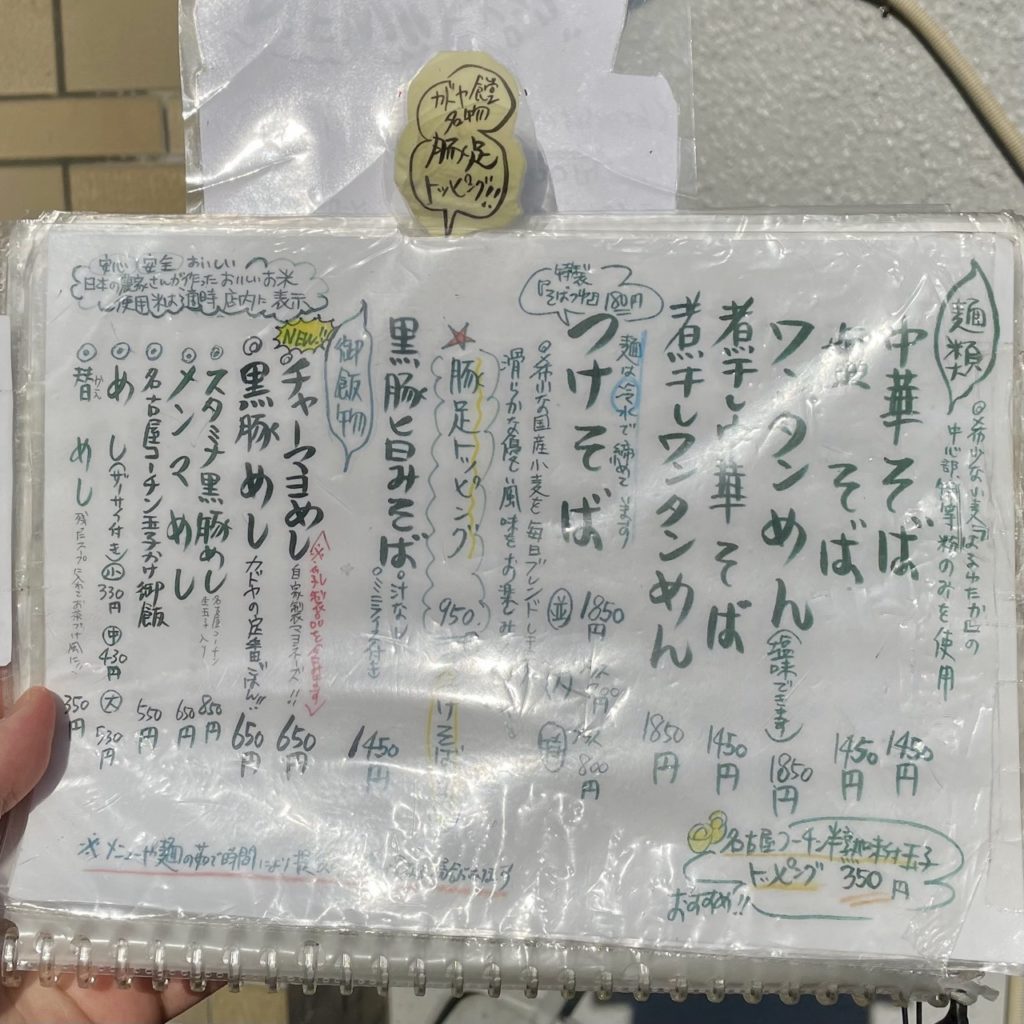 ガヤ食堂
名物
豚足
トッピング!!
麺類
◎希少ない麦「はるゆたか」の
中心部 特等粉のみを使用
中華そば 1450円
そば 1450円
ワンタンめん(塩味できます) 1850円
煮干し中華そば 1450円
煮干しワンタンめん 1850円
特製
「そばつゆ」180円
麺は冷水で締めています
つけそば
並 1850円
800円
◎希少な国産小麦を毎日ブレンドし
滑らかな優しい風味をお楽しみ
★豚足トッピング 950
黒豚旨みそば 汁なし 1450円
御飯物
安心 安全 おいしい
日本の農家さんが作ったおいしいお米
使用米は適時店内に表示
NEW!!
◎チャーマヨめし 自家製マヨネーズ!! 650円
◎黒豚めし ガヤの定番ごはん!! 650円
◎スタミナ黒豚めし 名古屋コーチン生玉子入り 850円
◎メンマめし 650円
◎名古屋コーチン玉子かけ御飯 550円
◎めし(ザーサイ付き) 小 330円 中 430円 大 530円
◎替めし 残ったスープに入れてお茶づけ風に!! 350円
名古屋コーチン半熟味付玉子
トッピング 350円
おすすめ!!
※メニューや麺の茹で時間により提供